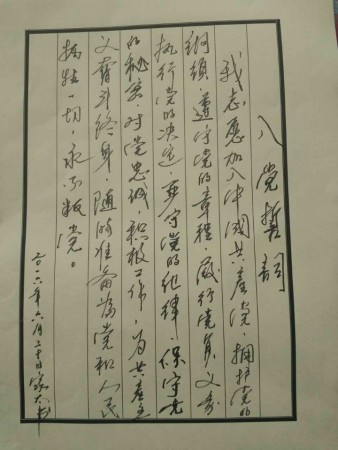 入党誓词
我志愿加入中國共産党，拥护党的
纲领，遵守党的章程，履行党員义务，
执行党的决定，严守党的纪律，保守党
的秘密，对党忠诚，积极工作，为共産主
义奮斗终身，随时准备為党和人民
牺牲一切，永不叛党。
二〇一六年六月二十日